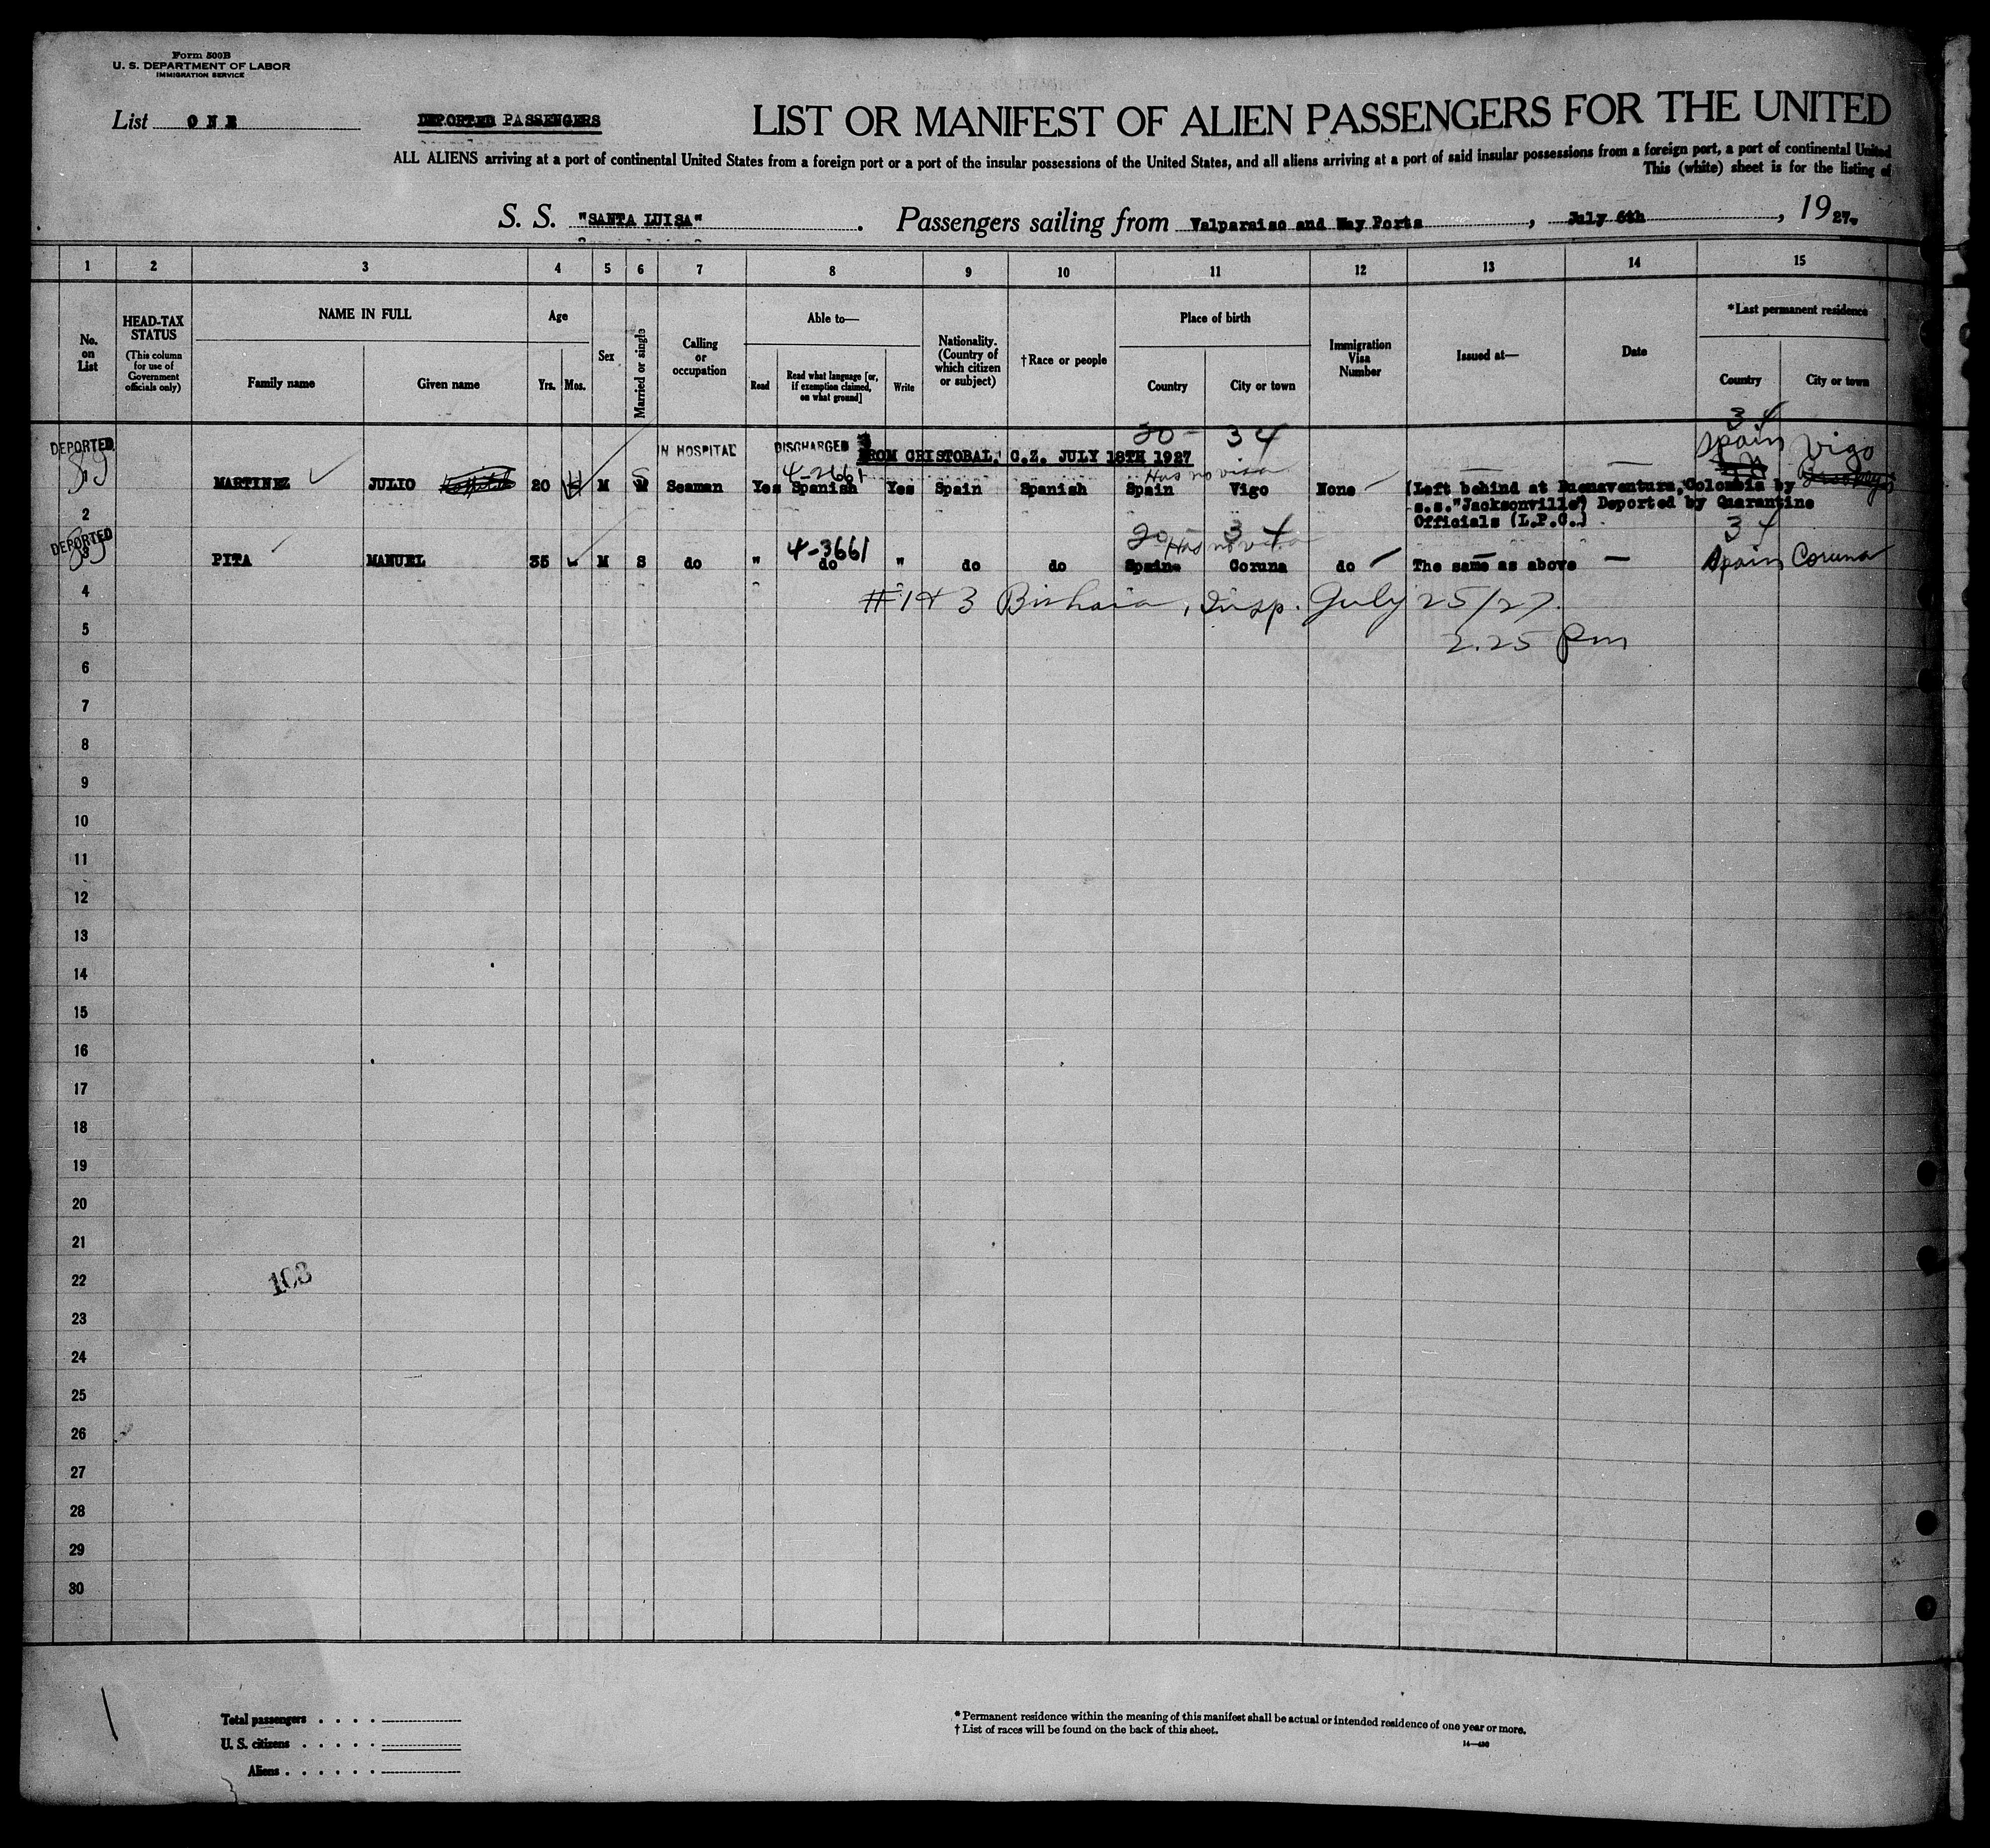 Form 500B
U. S. DEPARTMENT OF LABOR
IMMIGRATION SERVICE
List ONE
DEPORTED PASSENGERS
LIST OR MANIFEST OF ALIEN PASSENGERS FOR THE UNITED
ALL ALIENS arriving at a port of continental United States from a foreign port or a port of the insular possessions of the United States, and all aliens arriving at a port of said insular possessions from a foreign port, a port of continental United
This (white) sheet is for the listing of
S. S. "SANTA LUISA". Passengers sailing from Valparaiso and Way Ports, July 6th, 1927.
1 2 3 4 5 6 7 8 9 10 11 12 13 14 15
No. on List
HEAD-TAX STATUS
(This column for use of Government officials only)
NAME IN FULL
Family name Given name
Age
Yrs. Mos.
Sex
Married or single
Calling or occupation
Able to—
Read
Read what language [or, if exemption claimed, on what ground]
Write
Nationality. (Country of which citizen or subject)
†Race or people
Place of birth
Country City or town
Immigration Visa Number
Issued at—
Date
*Last permanent residence
Country City or town
34
DEPORTED IN HOSPITAL DISCHARGED 20- 34 Spain Vigo
FROM CRISTOBAL, C.Z. JULY 18TH 1927
4-2661 Has no visa
1 MARTINEZ JULIO 20 M M S Seaman Yes Spanish Yes Spain Spanish Spain Vigo None (Left behind at Buenaventura, Colombia by
2 s.s."Jacksonville") Deported by Quarantine
Officials (L.P.C.)
DEPORTED 20 34 34
4-3661 Has no visa
3 PITA MANUEL 35 M S do " do " do do Spain Coruna do The same as above Spain Coruna
4 #1 & 3 Insp. July 25/27.
5 2.25 pm
6
7
8
9
10
11
12
13
14
15
16
17
18
19
20
21
22
103
23
24
25
26
27
28
29
30
Total passengers
U. S. citizens
Aliens
* Permanent residence within the meaning of this manifest shall be actual or intended residence of one year or more.
† List of races will be found on the back of this sheet.
14—430